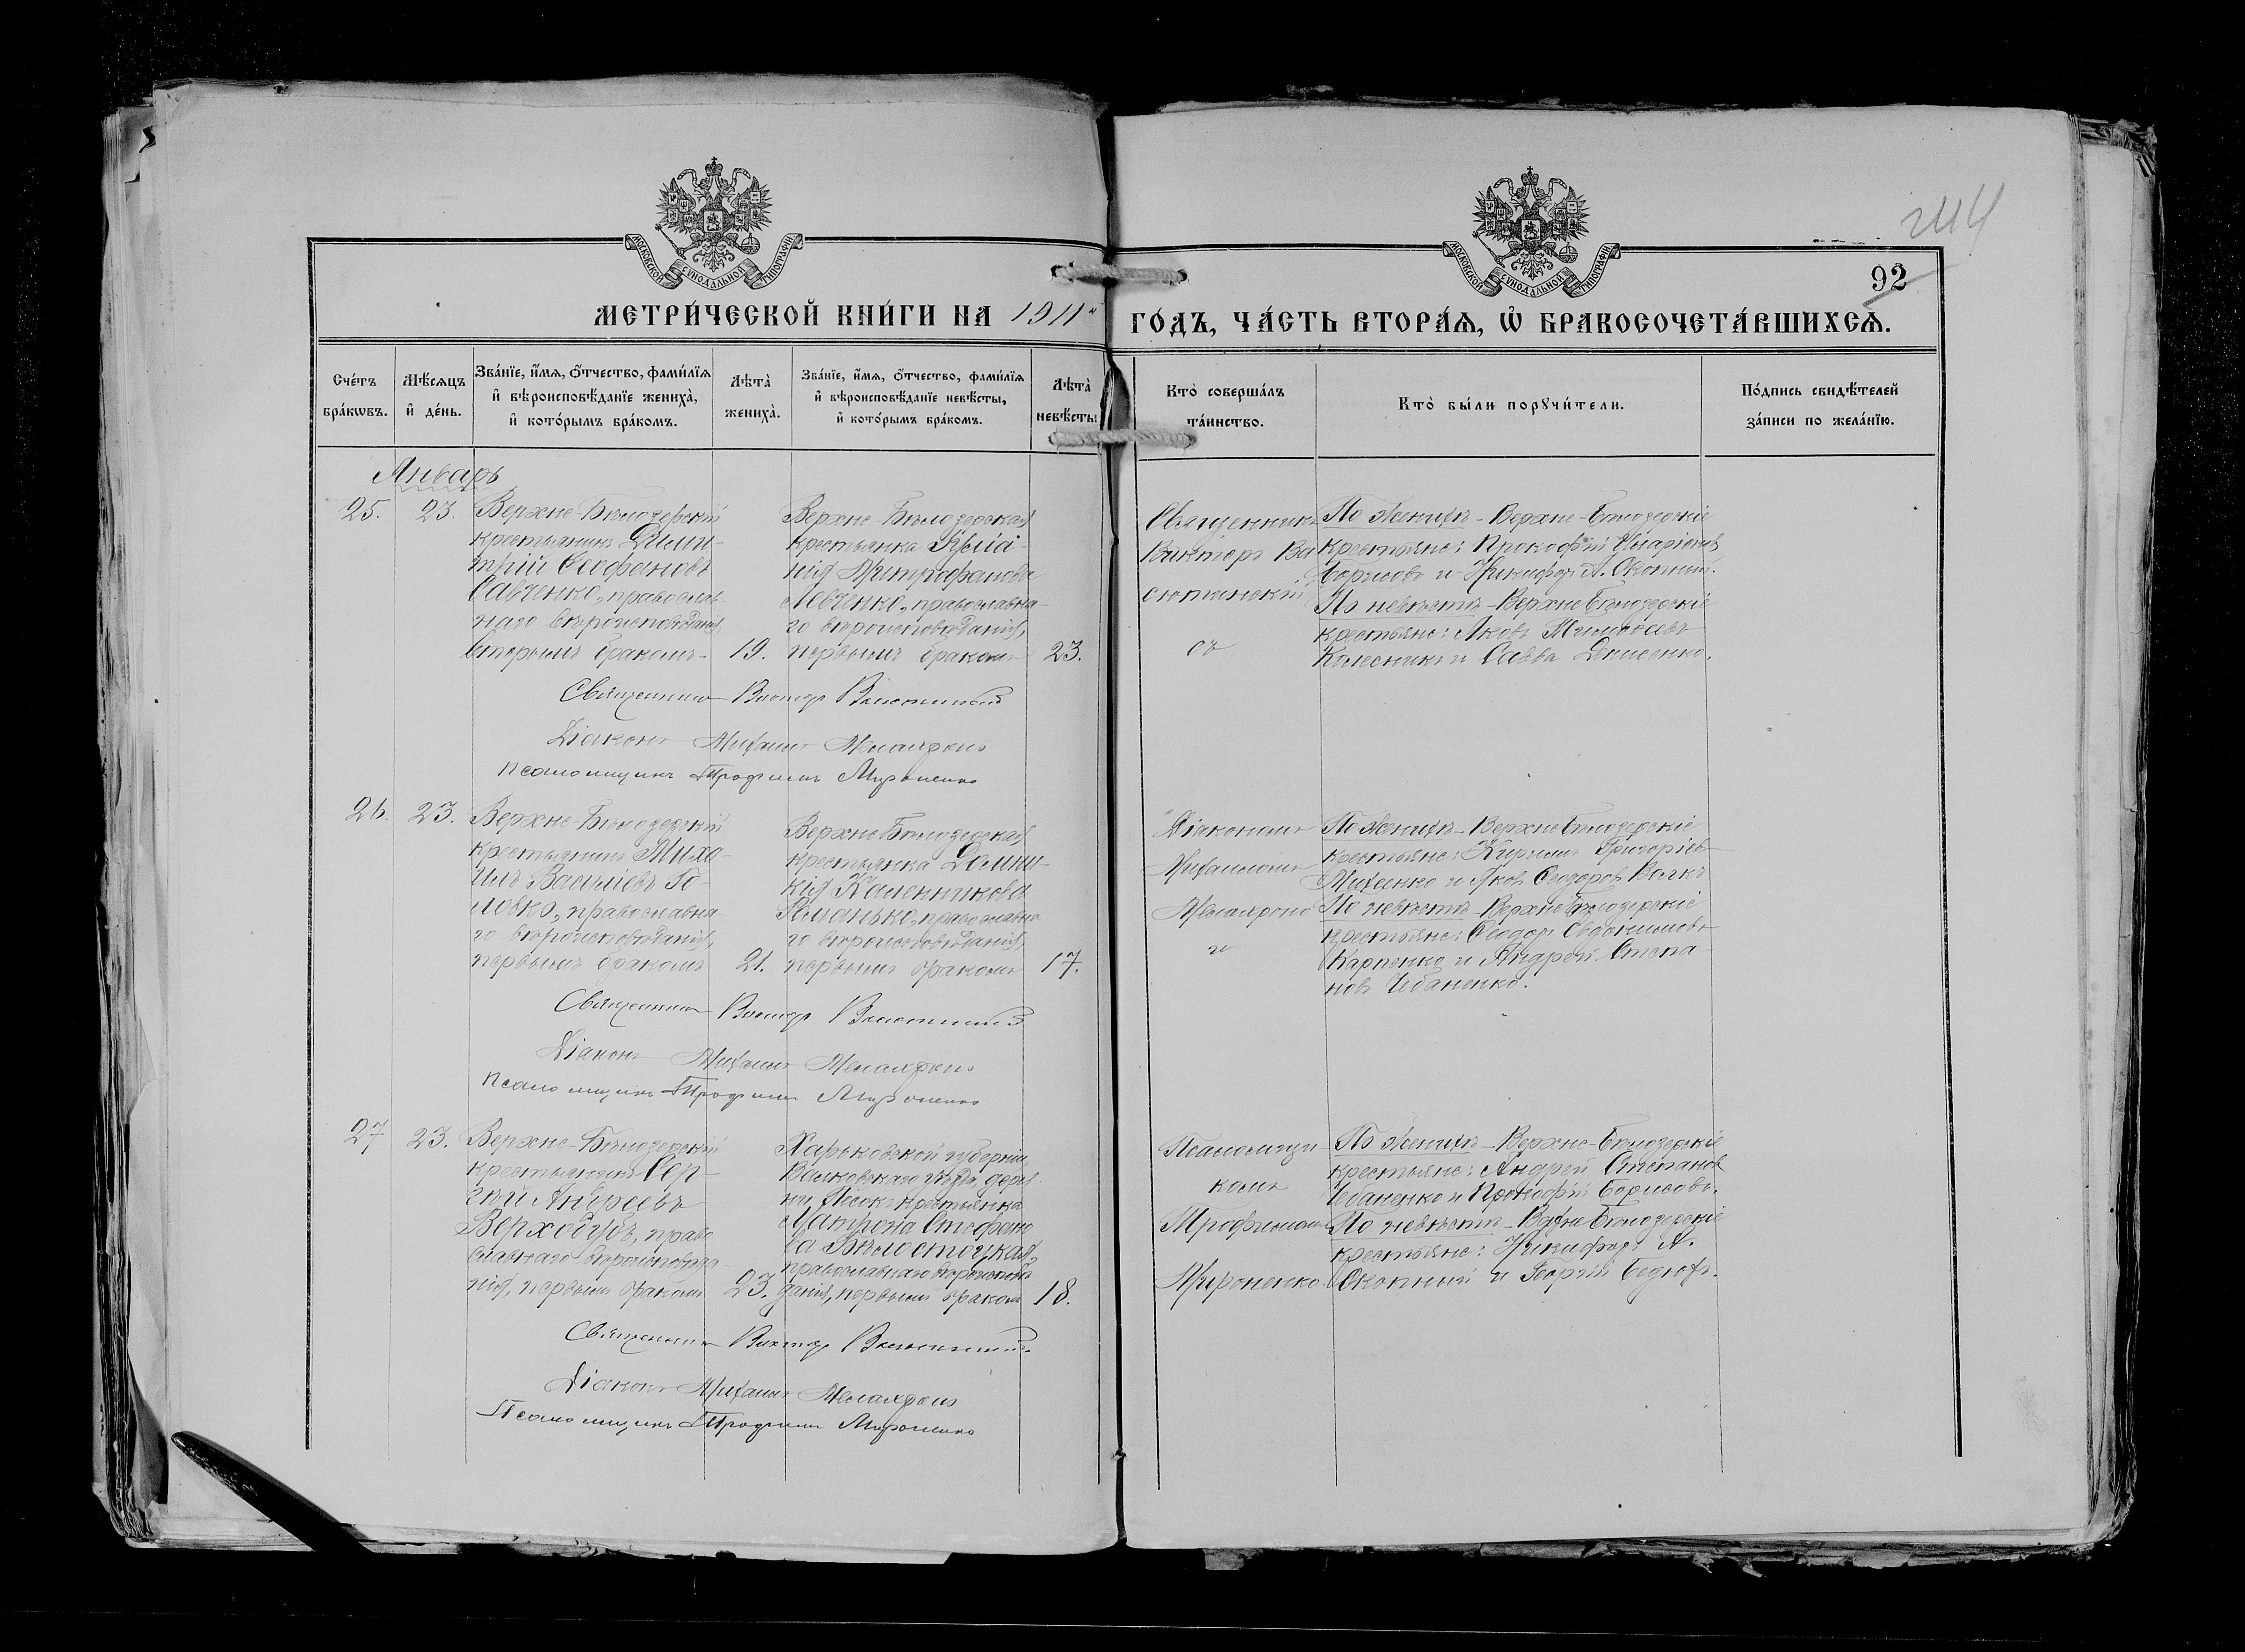 244
92
МОСКОВСКОЙ СѴНОДАЛЬНОЙ ТИПОГРАФІИ
МОСКОВСКОЙ СѴНОДАЛЬНОЙ ТИПОГРАФІИ
МЕТРИ́ЧЕСКОЙ КНИ́ГИ НА 1911 ГО́ДЪ, ЧА́СТЬ ВТОРА́Ѧ, Ѽ БРАКОСОЧЕТА́ВШИХСѦ.
Сче́тъ бра́кѡвъ.
Мѣ́сѧцъ и҆ де́нь.
Зва́нїе, и҆́мѧ, ѻ҆́тчество, фами́лїѧ
и҆ вѣроисповѣ́данїе жениха̀,
и҆ кото́рымъ бра́комъ.
Лѣта̀ жениха̀.
Зва́нїе, и҆́мѧ, ѻ҆́тчество, фами́лїѧ
и҆ вѣроисповѣ́данїе невѣ́сты,
и҆ кото́рымъ бра́комъ.
Лѣта̀ невѣ́сты
Кто̀ соверша́лъ та́инство.
Кто̀ бы́ли порꙋчи́тели.
По́дпись свидѣ́телей
за́писи по жела́нїю.
Январь
25.
23.
Верхне-Бѣлозерскій
крестьянинъ Дими-
трій Ѳеофановъ
Савченко, православ-
наго вѣроисповѣданія,
вторымъ бракомъ
19.
Верхне-Бѣлозерская
крестьянка
Митрофанова
Левченко, православна-
го вѣроисповѣданія,
первымъ бракомъ
23.
Священникъ
Викторъ Ва
сютинскій
съ
По женихѣ - Верхне-Бѣлозерскіе
крестьяне: Прокофій Иларіоновъ
Борисовъ и Никифоръ А. Окопный.
По невѣстѣ - Верхне Бѣлозерскіе
крестьяне: Яковъ Тимофеевъ
Колесникъ и Савва Денисенко.
Священникъ Викторъ Васютинскій
Діаконъ Михаилъ
Псаломщикъ Трофимъ Мироненко
26.
23.
Верхне-Бѣлозерскій
крестьянинъ Миха-
илъ Васильевъ Го-
ловко, православна-
го вѣроисповѣданія,
первымъ бракомъ
21.
Верхне Бѣлозерская
крестьянка Домни-
кія Каленникова
православна
го вѣроисповѣданія,
первымъ бракомъ
17.
Діакономъ
Михаиломъ
и
По женихѣ - Верхне Бѣлозерскіе
крестьяне: Кириллъ Григорьевъ
Михеенко и Яковъ Ѳеодоровъ Волкъ
По невѣстѣ - Верхне Бѣлозерскіе
крестьяне: Ѳеодоръ Евдокимовъ
Карпенко и Андрей Степа-
новъ Чебаненко.
Священникъ Викторъ Васютинскій
Діаконъ Михаилъ
Псаломщикъ Трофимъ Мироненко
27
23.
Верхне-Бѣлозерскій
крестьянинъ Сер-
гѣй Андреевъ
Верходубъ, право
славнаго вѣроисповѣда-
нія, первымъ бракомъ
23.
Харьковской губерніи
Валковскаго уѣзда, дерев-
ни крестьянка
Матрона Стефано
ва Бѣлостоцкая,
православнаго вѣроисповѣ
данія, первымъ бракомъ
18.
Псаломщи
комъ
Трофимомъ
Мироненко
По женихѣ - Верхне-Бѣлозерскіе
крестьяне: Андрей Степановъ
Чебаненко и Прокофій Борисовъ.
По невѣстѣ - Верхне Бѣлозерскіе
крестьяне: Никифоръ А.
Окопный и Георгій
Священникъ Викторъ Васютинскій
Діаконъ Михаилъ
Псаломщикъ Трофимъ Мироненко